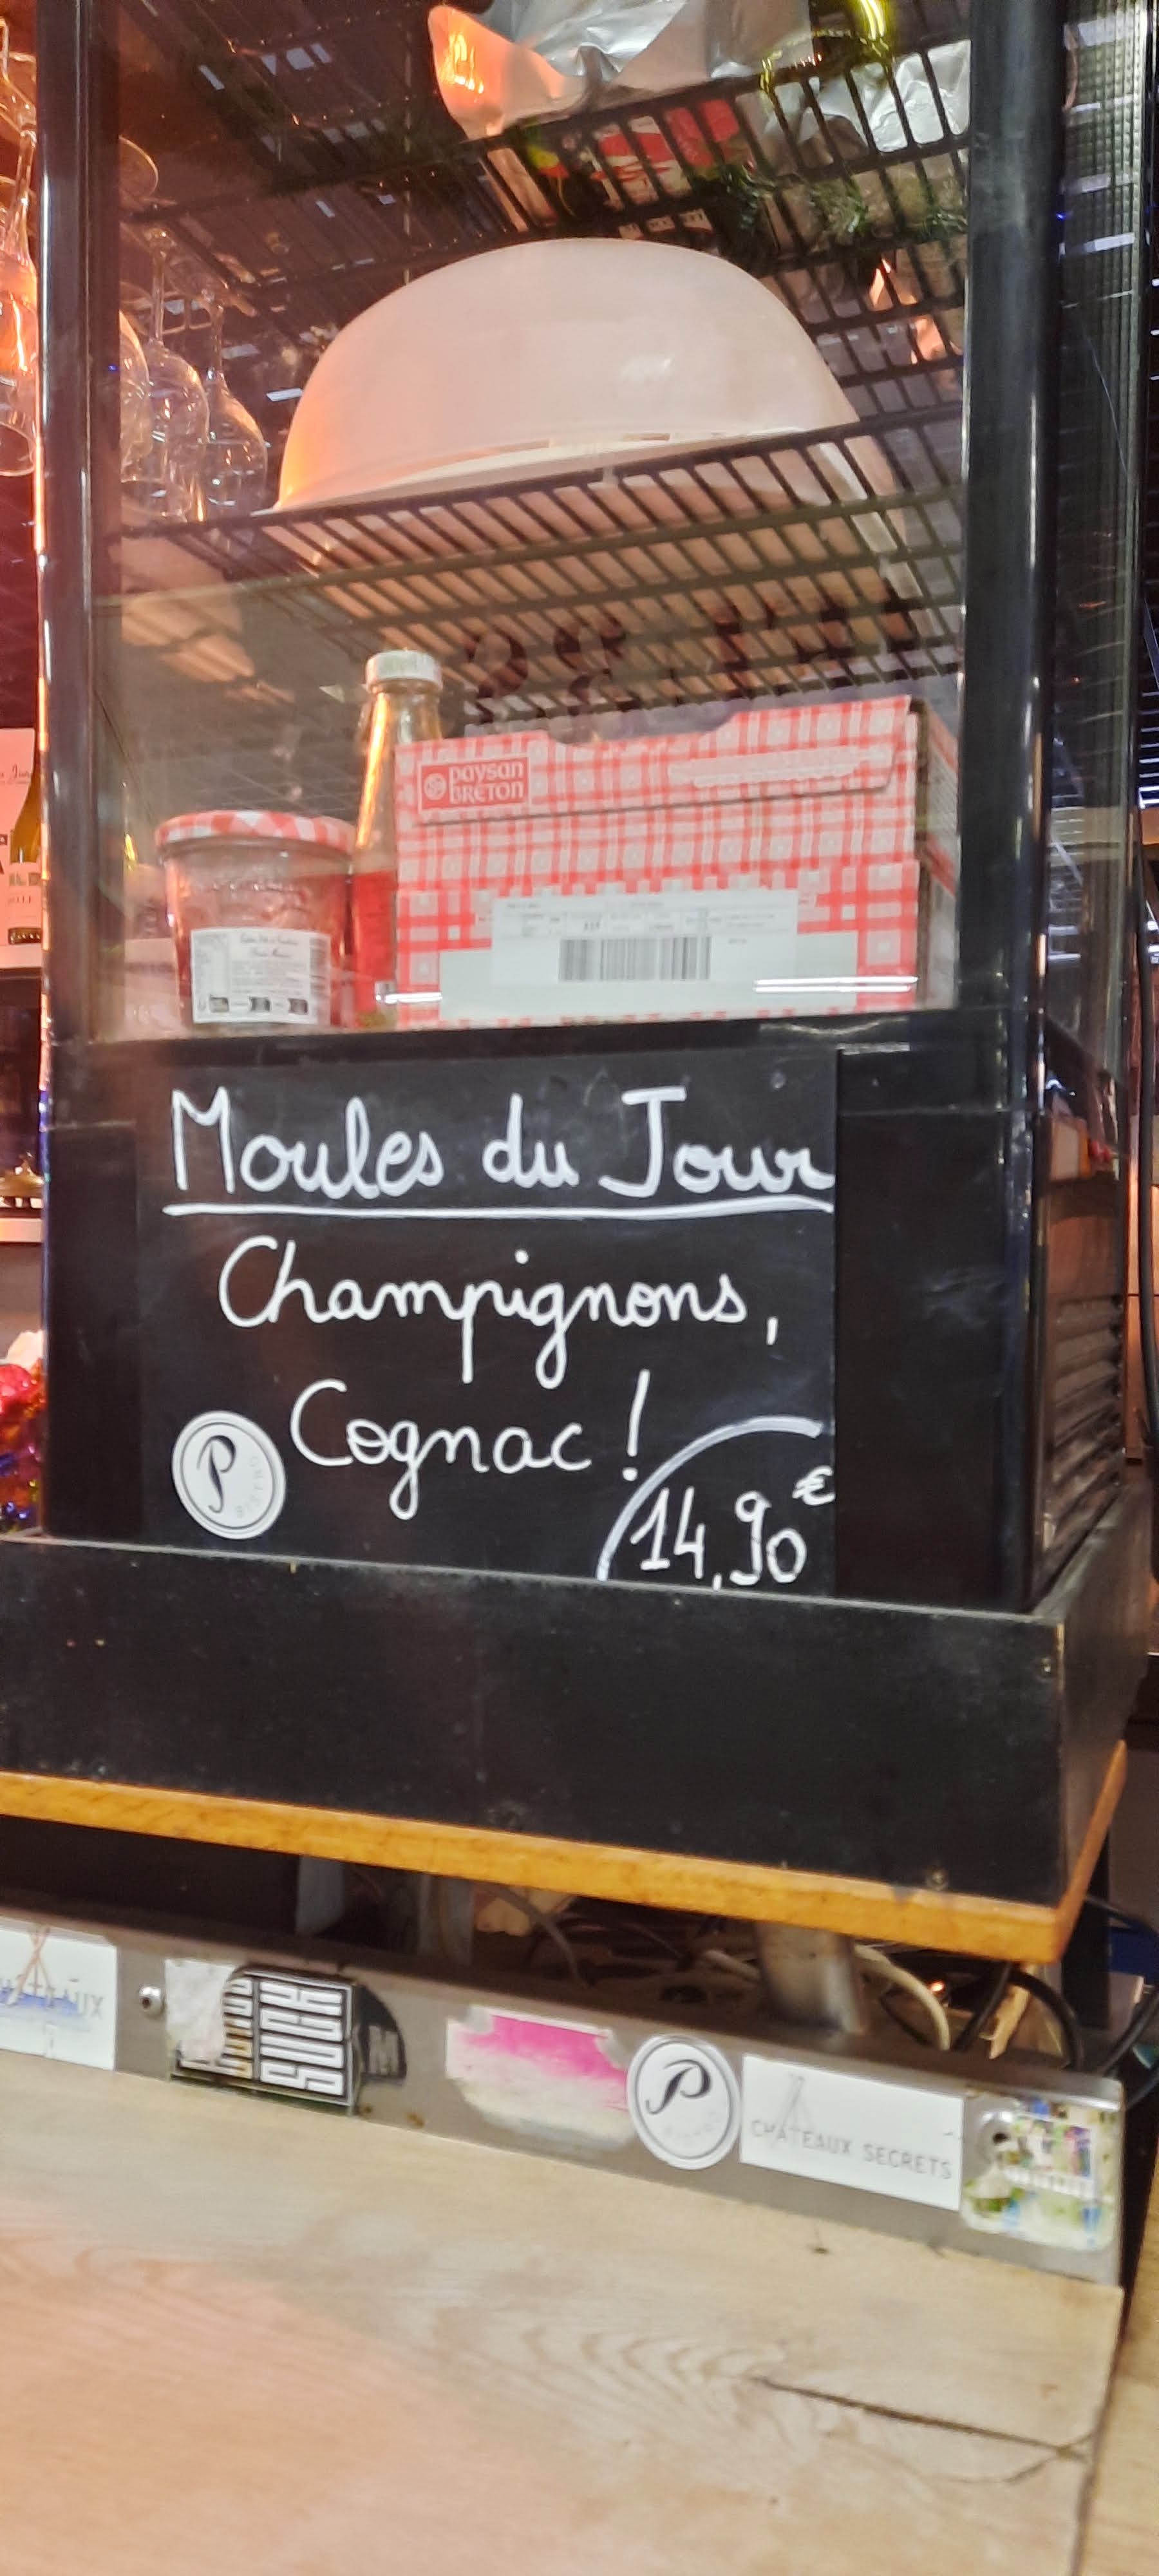 paysan
BRETON
Moules du Jour
Champignons,
Cognac !
P
14,90€
SUCK
P
CHATEAUX SECRETS